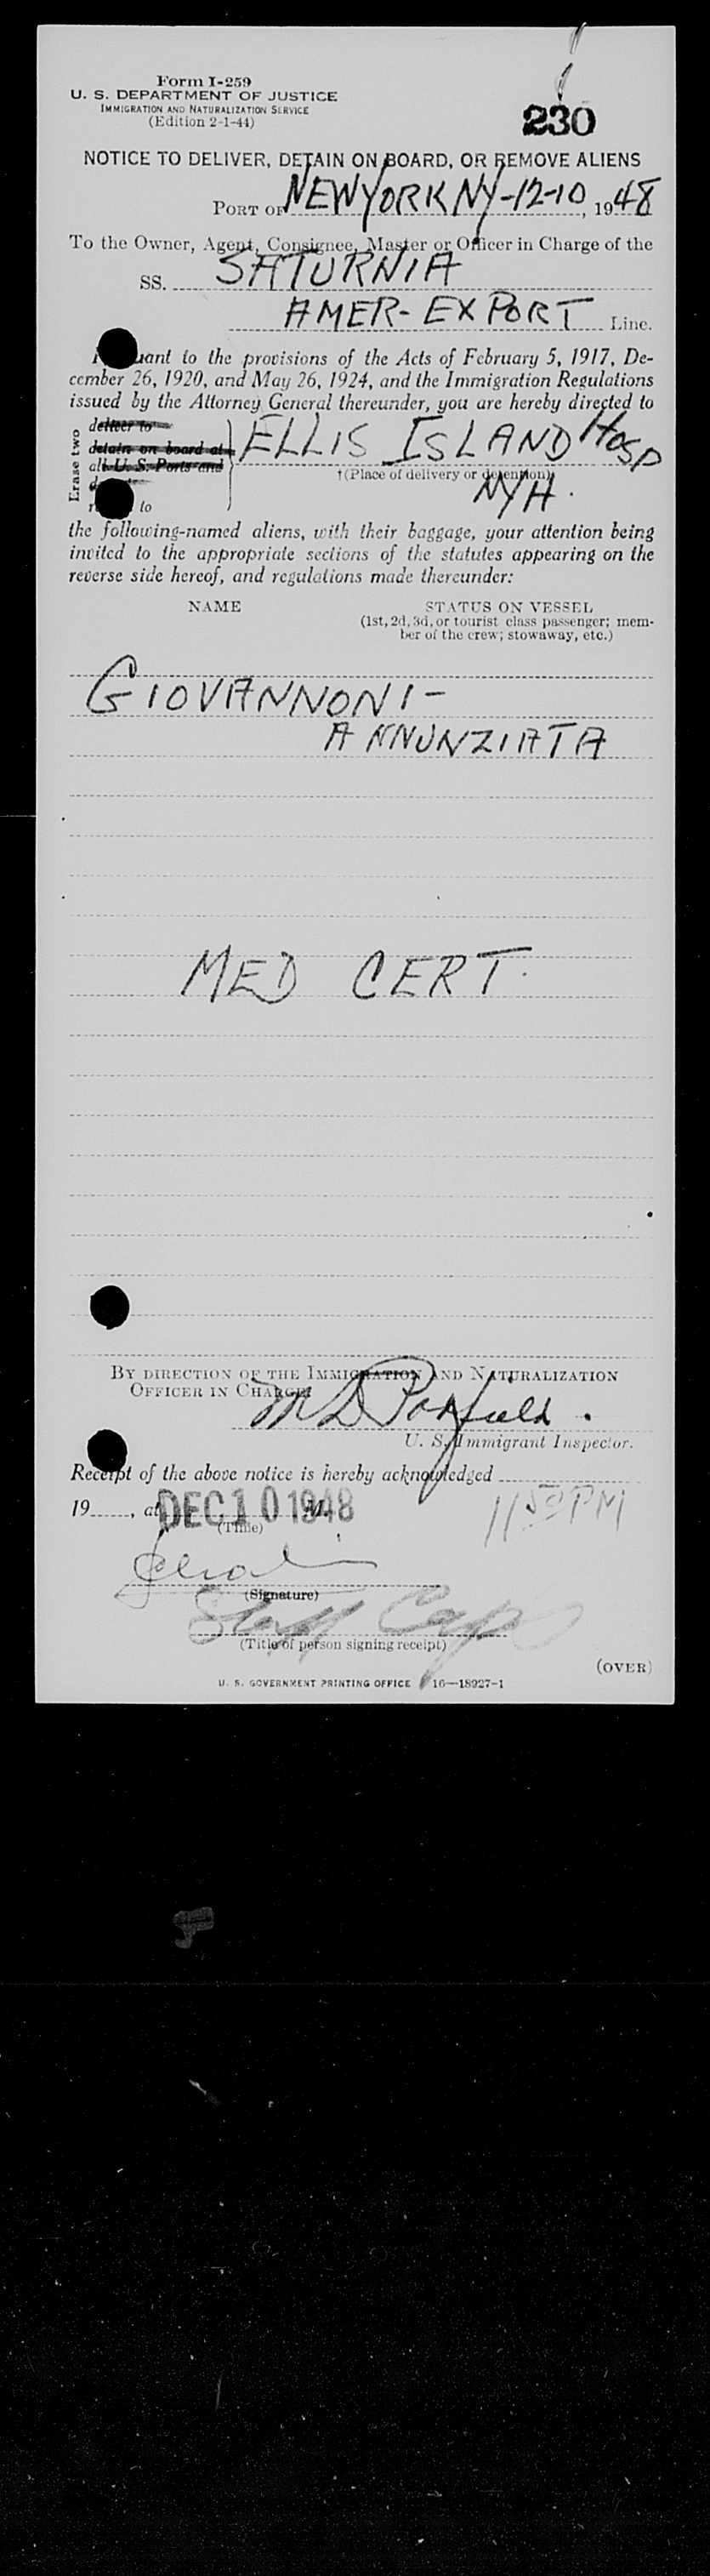 Form I-259
U. S. DEPARTMENT OF JUSTICE
IMMIGRATION AND NATURALIZATION SERVICE
(Edition 2-1-44)
230
NOTICE TO DELIVER, DETAIN ON BOARD, OR REMOVE ALIENS
PORT OF NEW YORK NY-12-10, 1948
To the Owner, Agent, Consignee, Master or Officer in Charge of the
SS. SATURNIA
AMER-EXPORT Line.
to the provisions of the Acts of February 5, 1917, De-
cember 26, 1920, and May 26, 1924, and the Immigration Regulations
issued by the Attorney General thereunder, you are hereby directed to
Erase two
deliver to
detain on board at
all U. S. Ports and
to
ELLIS ISLAND HOSP
†(Place of delivery or detention)
NYH.
the following-named aliens, with their baggage, your attention being
invited to the appropriate sections of the statutes appearing on the
reverse side hereof, and regulations made thereunder:
NAME STATUS ON VESSEL
(1st, 2d, 3d, or tourist class passenger; mem-
ber of the crew; stowaway, etc.)
GIOVANNONI-
ANNUNZIATA
MED CERT.
BY DIRECTION OF THE IMMIGRATION AND NATURALIZATION
OFFICER IN CHARGE
U. S. Immigrant Inspector.
Receipt of the above notice is hereby acknowledged
19, at DEC 10 1948 M. 11 50 PM
(Time)
(Signature)
Staff Capt
(Title of person signing receipt)
(OVER)
U. S. GOVERNMENT PRINTING OFFICE 16—18927-1